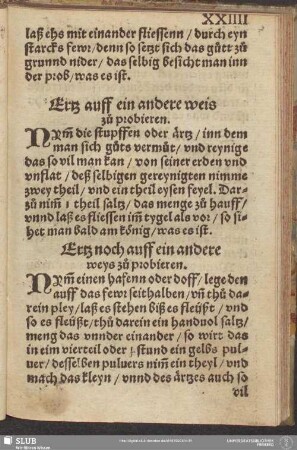 XXIIII
laß ehs mit einander fliessenn / durch eyn
starcks fewr / denn so setzt sich das gůtt zů
grunnd nider / das selbig besicht man inn
der prob / was es ist.
Ertz auff ein andere weis
zů probieren.
Nym̃ die stupffen oder ärtz / inn dem
man sich gůts vermůt / vnd reynige
das so vil man kan / von seiner erden vnd
vnflat / deß selbigen gereynigten nimme
zwey theil / vnd ein theil eysen feyel. Dar-
zů nim̃ 1 theil saltz / das menge zů hauff /
vnnd laß es fliessen im̃ tygel als vor / so si-
het man bald am kőnig / was es ist.
Ertz noch auff ein andere
weys zů probieren.
Nym̃ einen hafenn oder doff / lege den
auff das fewr seithalben / vñ thů da-
rein pley / laß es stehen biß es fleüßt / vnd
so es fleüßt / thů darein ein handuol saltz /
meng das vnnder einander / so wirt das
in eim vierteil oder stund ein gelbs pul-
uer / desselben puluers nim̃ ein theyl / vnd
mach das kleyn / vnnd des ärtzes auch so
vil
SLUB
Wir führen Wissen.